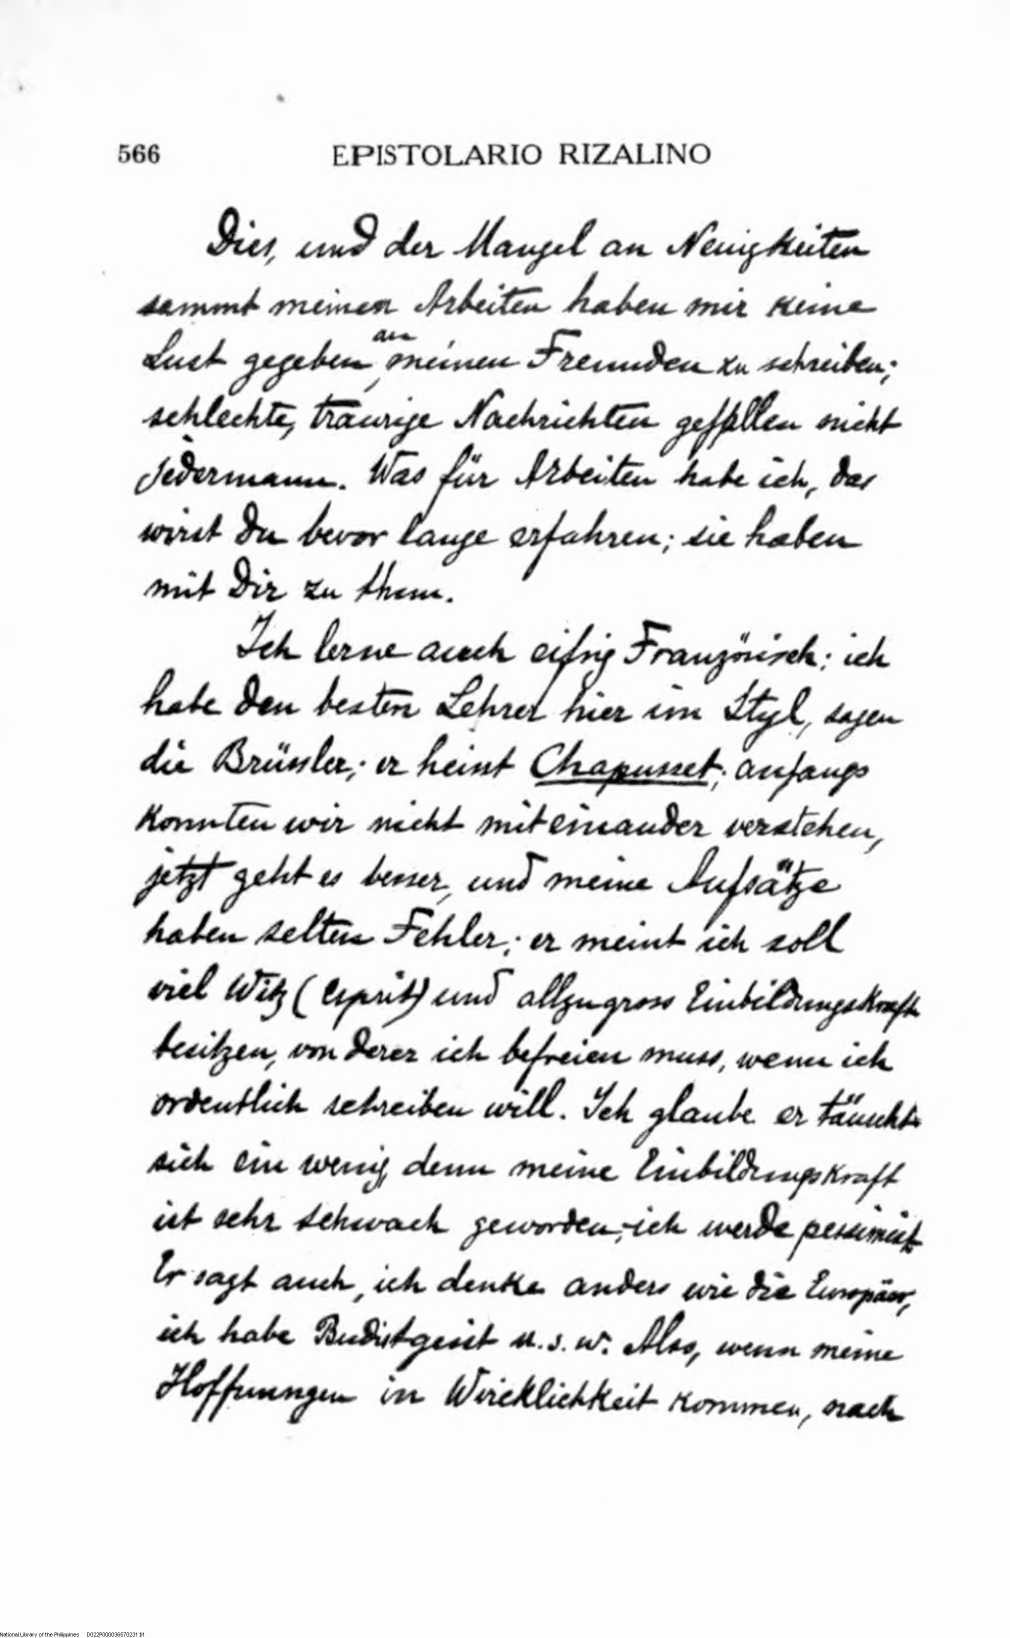 566 EPISTOLARIO RIZALINO
Dies, und der Mangel an Neuigkeiten
sammt meinen Arbeiten haben mir keine
Lust gegeben an meinen Freunden zu schreiben;
schlechte, traurige Nachrichten gefallen nicht
jedermann. Was für Arbeiten habe ich, das
wirst Du bevor lange erfahren; sie haben
mit Dir zu thun.
Ich lerne auch eifrig Französisch; ich
habe den besten Lehrer hier im Styl, sagen
die Brüssler; er heisst Chapusset; anfangs
konnten wir nicht miteinander verstehen,
jetzt geht es besser, und meine Aufsätze
haben selten Fehler; er meint ich soll
viel Witz (esprit) und allzugross Einbildungskraft
besitzen, von derer ich befreien muss, wenn ich
ordentlich schreiben will. Ich glaube er täuscht
sich ein wenig, denn meine Einbildungskraft
ist sehr schwach geworden; ich werde pessimist.
Er sagt auch, ich denke anders wie die Europäer,
ich habe Budistgeist u. s. w. Also, wenn meine
Hoffnungen in Wircklichkeit kommen, nach
National Library of the Philippines